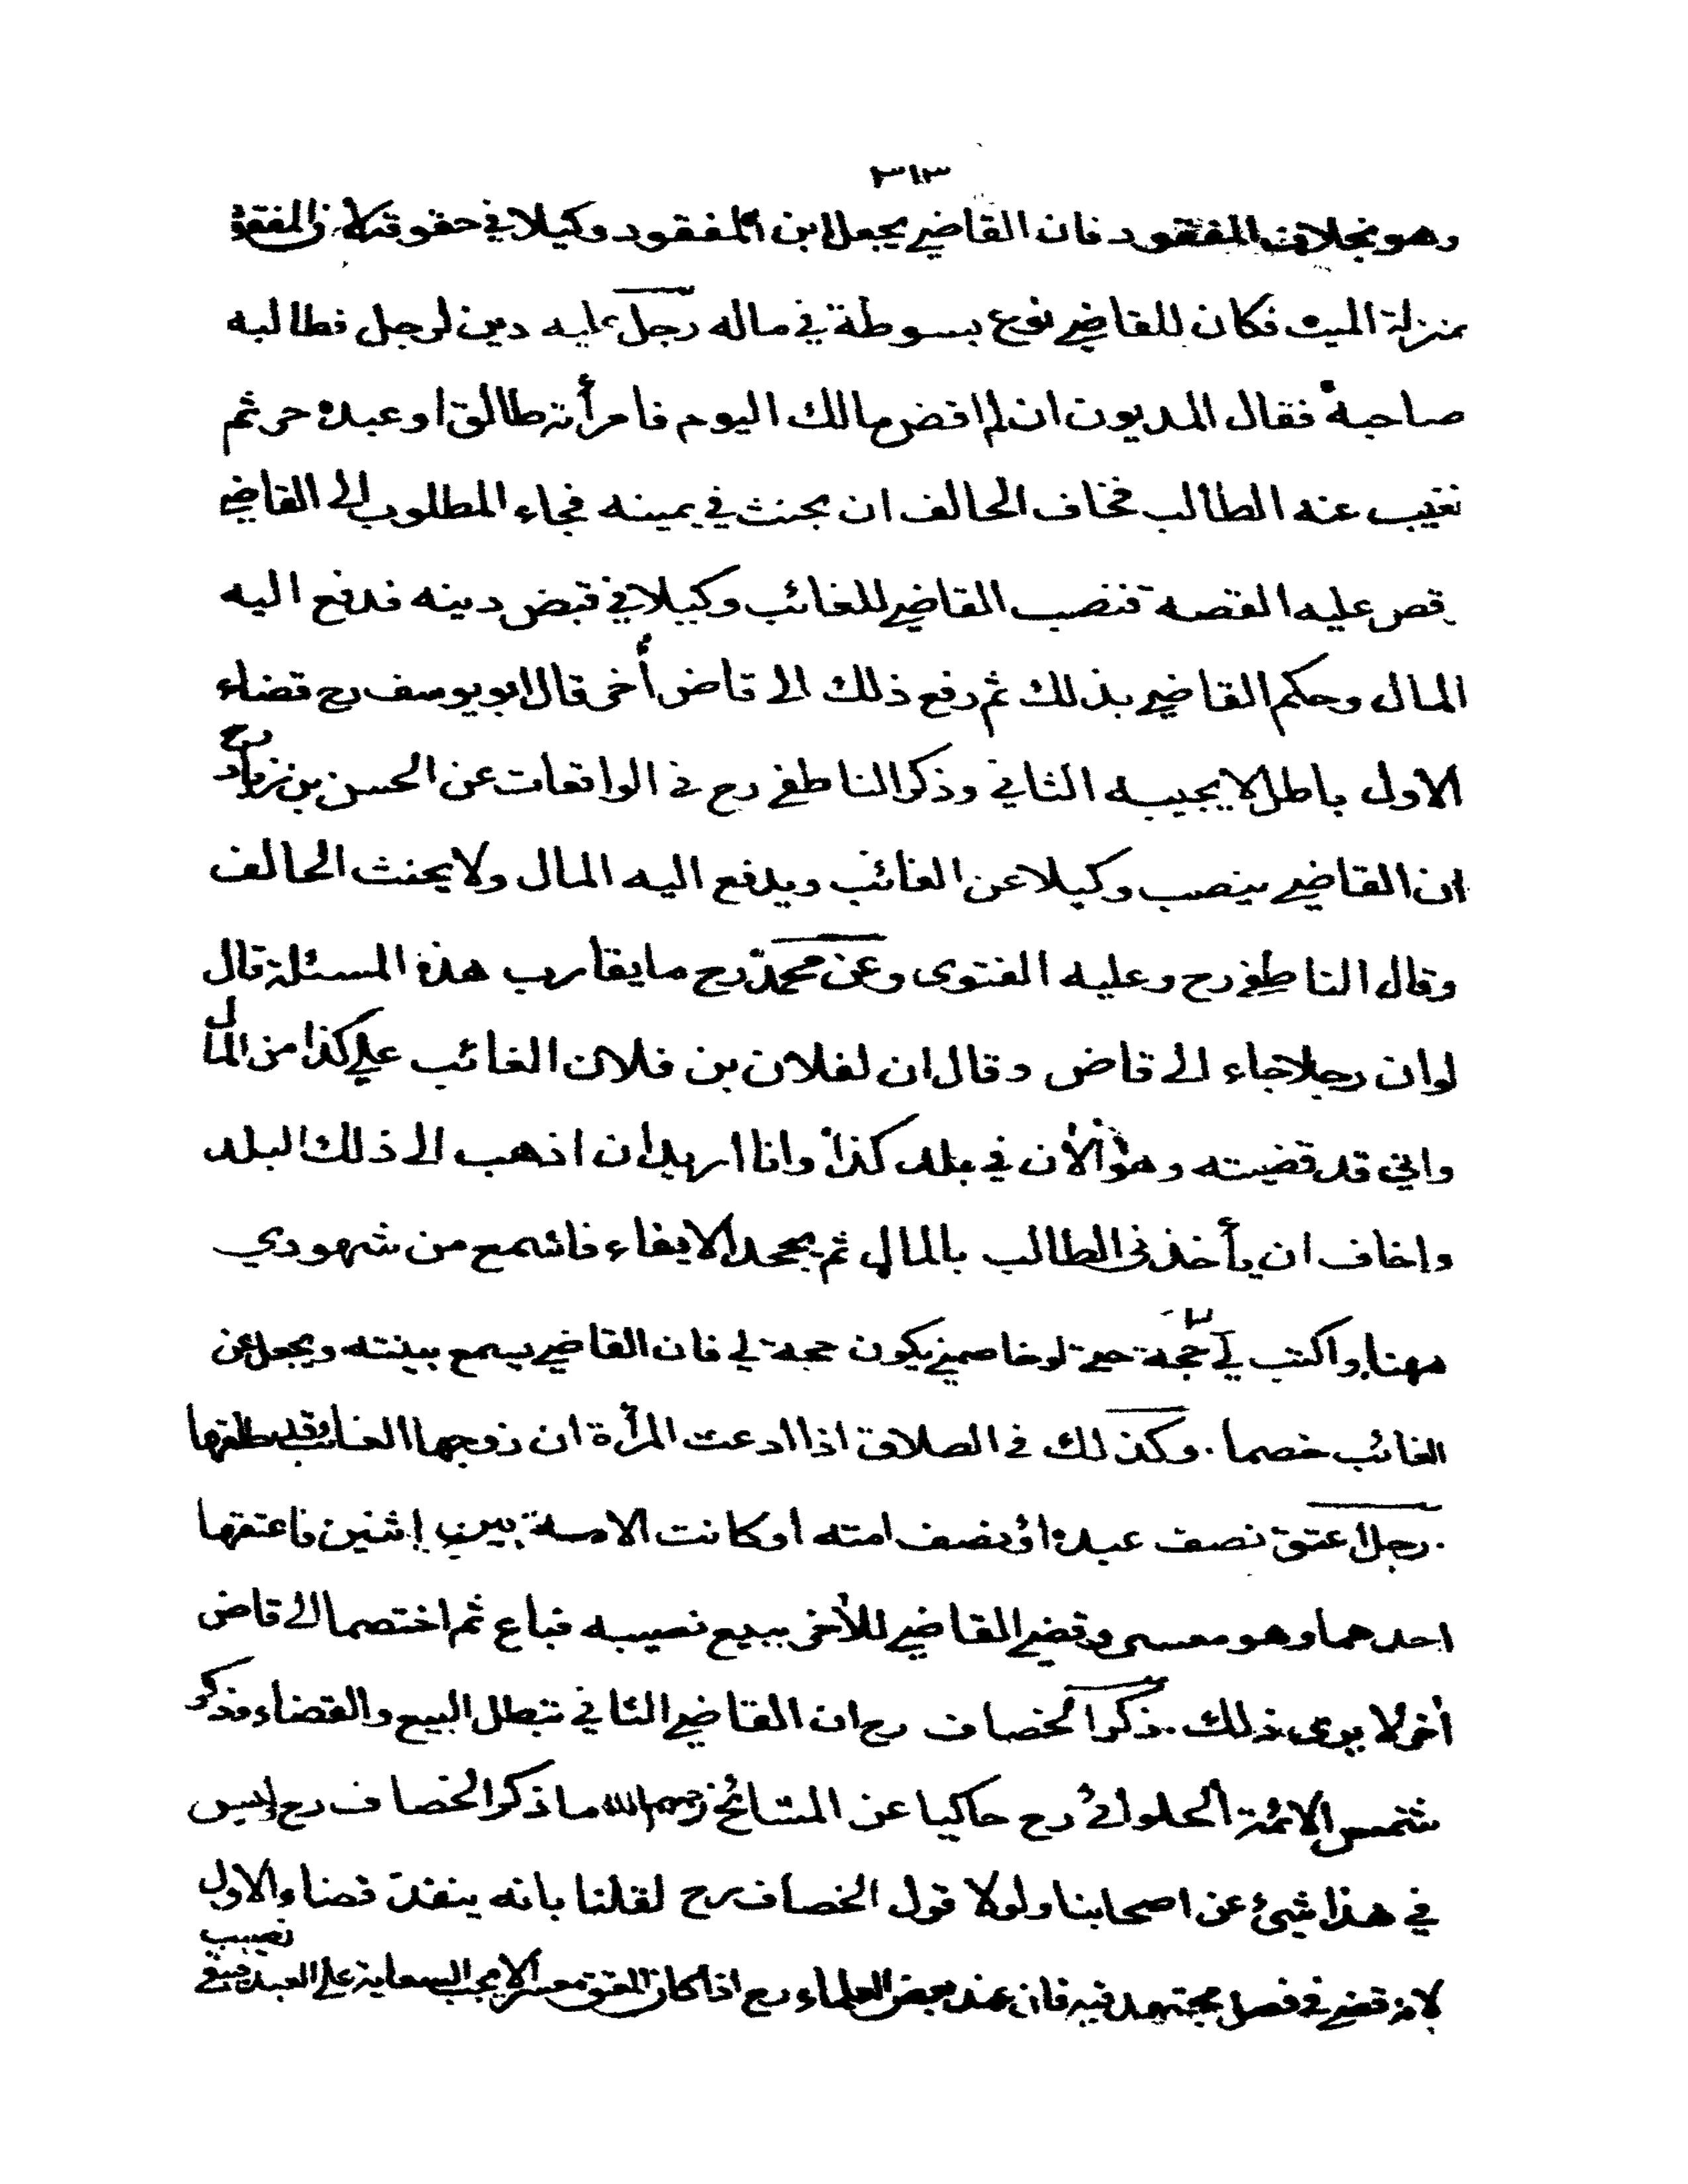 ٣١٣
وهو بخلاف المفقود فان القاضي يجعل ابن المفقود وكيلا في حقوقه لان المفقود
بمنزلة الميت فكان للقاضي نوع بسوطة في ماله رجل عليه دين لرجل فطالبه
صاحبه فقال المديون ان لم اقض مالك اليوم فامرأته طالق او عبده حر ثم
تغيب عنه الطالب فخاف الحالف ان يحنث في يمينه فجاء المطلوب الى القاضي
وقص عليه القصة فنصب القاضي للغائب وكيلا في قبض دينه فدفع اليه
المال وحكم القاضي بذلك ثم رفع ذلك الى قاض أخر قال ابو يوسف رح قضاء
الاول باطل لا يجيبه الثاني وذكر الناطفي رح في الواقعات عن الحسن بن زياد رح
ان القاضي ينصب وكيلا عن الغائب ويدفع اليه المال ولا يحنث الحالف
وقال الناطفي رح وعليه الفتوى وعن محمد رح ما يقارب هذه المسئلة قال
لو ان رجلا جاء الى قاض وقال ان لفلان بن فلان الغائب علي كذا من المال
واني قد قضيته وهو الأن في بلد كذا وانا اريد ان اذهب الى ذلك البلد
واخاف ان يأخذني الطالب بالمال ثم يجحد الايفاء فاسمع من شهودي
مهنا واكتب لي حجة حتى لو خاصمني يكون حجة لي فان القاضي يسمع ببينته ويجعل عن
الغائب خصما . وكذلك في الطلاق اذا ادعت المرأة ان زوجها الغائب قد طلقها
. رجل اعتق نصف عبده او نصف امته او كانت الامة بين اثنين فاعتقها
احدهما وهو معسر وقضى القاضي للأخر ببيع نصيبه فباع ثم اختصما الى قاض
أخر لا يرى ذلك . ذكر الخصاف رح ان القاضي الثاني يبطل البيع والقضاء وذكر
شمس الائمة الحلوائي رح حاكيا عن المشائخ رحمهم الله ما ذكر الخصاف رح ليس
في هذا شئ عن اصحابنا ولولا قول الخصاف رح لقلنا بانه ينفذ قضاء الاول
لانه قضى في فصل مجتهد فيه فان عند بعض العلماء رح اذا كان المعتق معسرا لا يجب السعاية على العبد فيبقى نصيب